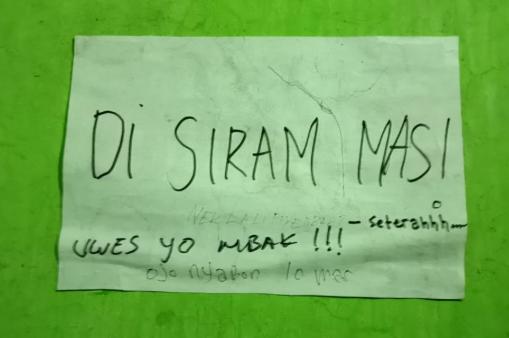 Di SIRAM MASI
- seterahhh....
UWES YO MBAK !!!
ojo nyabon lo mer